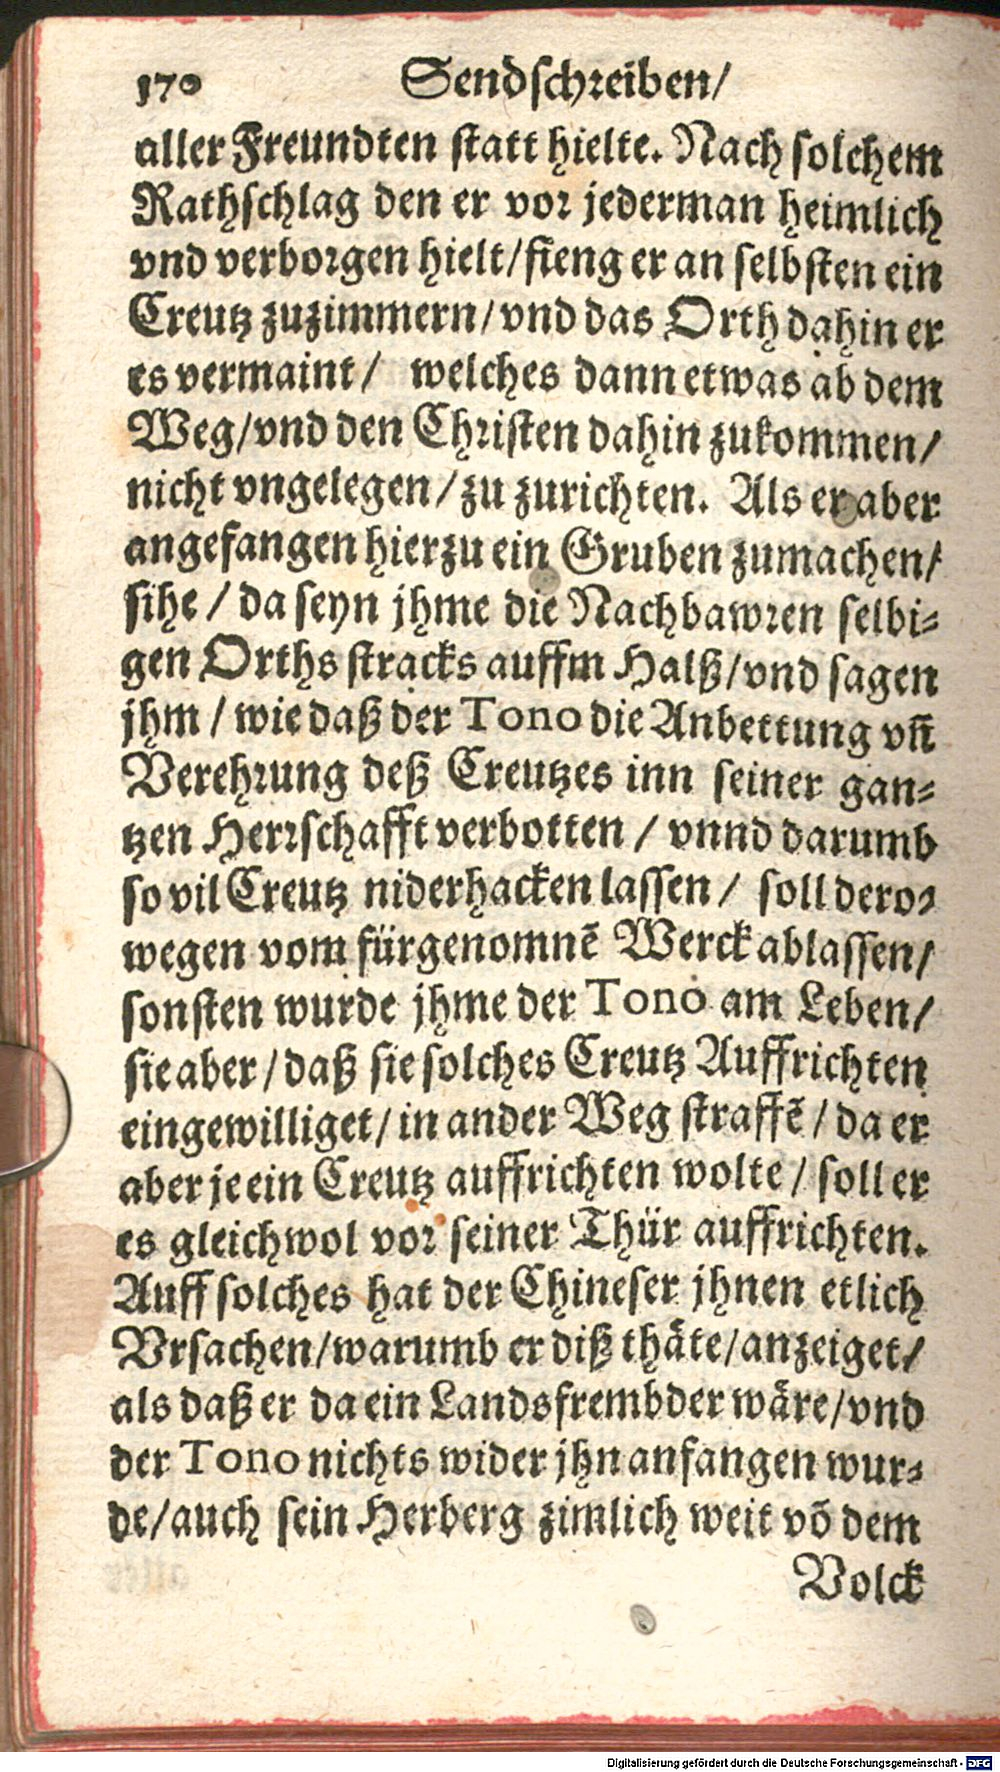 170 Sendschreiben/
aller Freundten statt hielte. Nach solchem
Rathschlag den er vor jederman heimlich
vnd verborgen hielt/fieng er an selbsten ein
Creutz zuzimmern/vnd das Orth dahin er
es vermaint/ welches dann etwas ab dem
Weg/vnd den Christen dahin zukommen/
nicht vngelegen/zu zurichten. Als er aber
angefangen hierzu ein Gruben zumachen/
sihe/ da seyn jhme die Nachbawren selbi-
gen Orths stracks auffm Halß/vnd sagen
jhm/ wie daß der Tono die Anbettung vn̄
Verehrung deß Creutzes inn seiner gan-
tzen Herrschafft verbotten/ vnnd darumb
so vil Creutz niderhacken lassen/ soll dero-
wegen vom fürgenomnē Werck ablassen/
sonsten wurde jhme der Tono am Leben/
sie aber/daß sie solches Creutz Auffrichten
eingewilliget/in ander Weg straffē/da er
aber je ein Creutz auffrichten wolte/ soll er
es gleichwol vor seiner Thür auffrichten.
Auff solches hat der Chineser jhnen etlich
Vrsachen/warumb er diß thäte/anzeiget/
als daß er da ein Landsfrembder wäre/vnd
der Tono nichts wider jhn anfangen wur-
de/auch sein Herberg zimlich weit vō dem
Volck
Digitalisierung gefördert durch die Deutsche Forschungsgemeinschaft - DFG